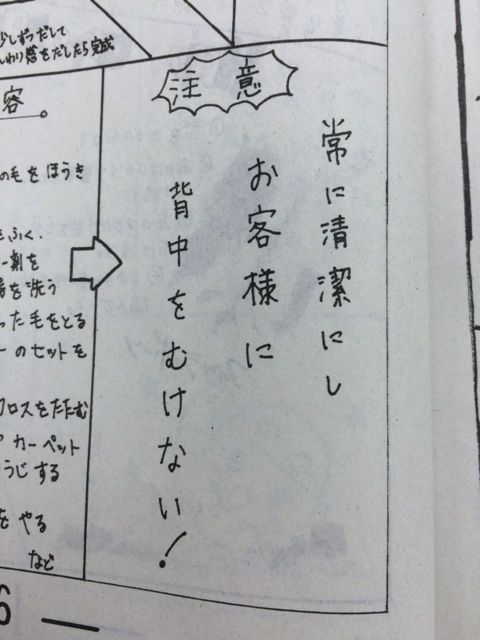 少しずつだして
わり感をだしたら完成
容。
の毛をほうき
をふく.
ー剤を
を洗う
った毛をとる
ーのセットを
クロスをたたむ
カーペット
うじする
をやる
など
注意
常に清潔にし
お客様に
背中をむけない!
6